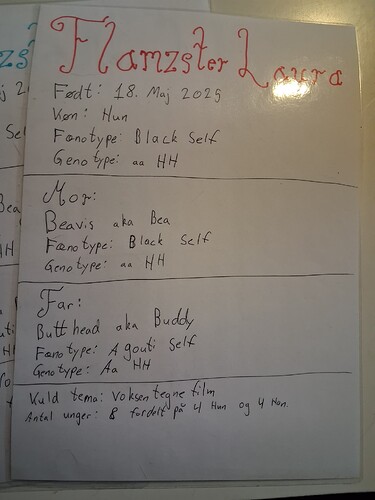 Flamzster Laura
Født: 18. Maj 2025
Køn: Hun
Fænotype: Black Self
Genotype: aa HH
Mor:
Beavis aka Bea
Fænotype: Black Self
Genotype: aa HH
Far:
Butthead aka Buddy
Fænotype: Agouti Self
Genotype: Aa HH
Kuld tema: Voksentegnefilm
Antal unger: 8 fordelt på 4 Hun og 4 Han.